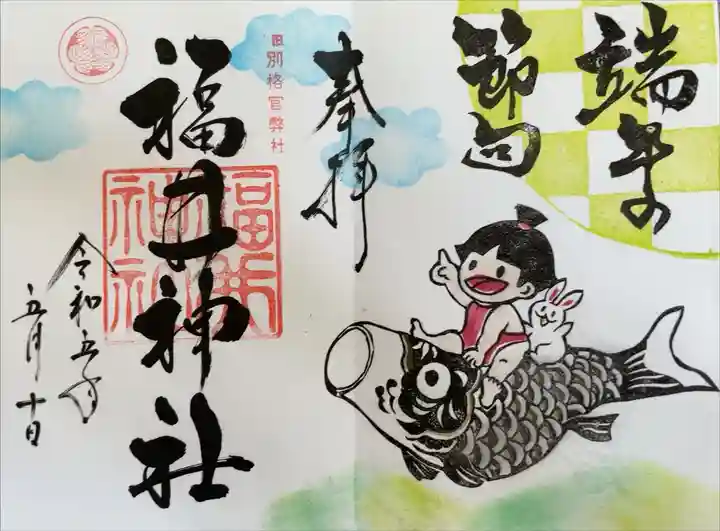 端午の
節句
奉拝
旧別格官幣社
福井神社
福井
神社
令和五年
五月十日